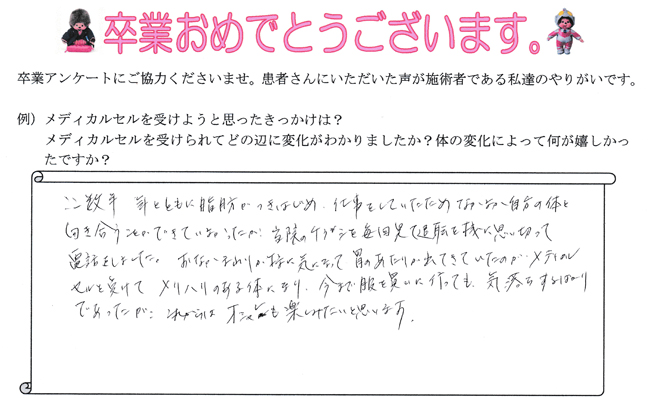 卒業おめでとうございます。
卒業アンケートにご協力くださいませ。患者さんにいただいた声が施術者である私達のやりがいです。
例）メディカルセルを受けようと思ったきっかけは？
メディカルセルを受けられてどの辺に変化がわかりましたか？体の変化によって何が嬉しかっ
たですか？
ここ数年 年とともに脂肪がつきはじめ、仕事をしていたためなかなか自分の体と
向き合うことができていなかったが、当院のチラシを毎回見て退職を機に思い切って
電話をしました。おなかまわりが特に気になって胃のあたりが出てきていたのがメディカル
セルを受けて メリハリのある体になり、今まで服を買いに行っても、気落ちするばかり
であったが、これからは オシャレも楽しみたいと思います。